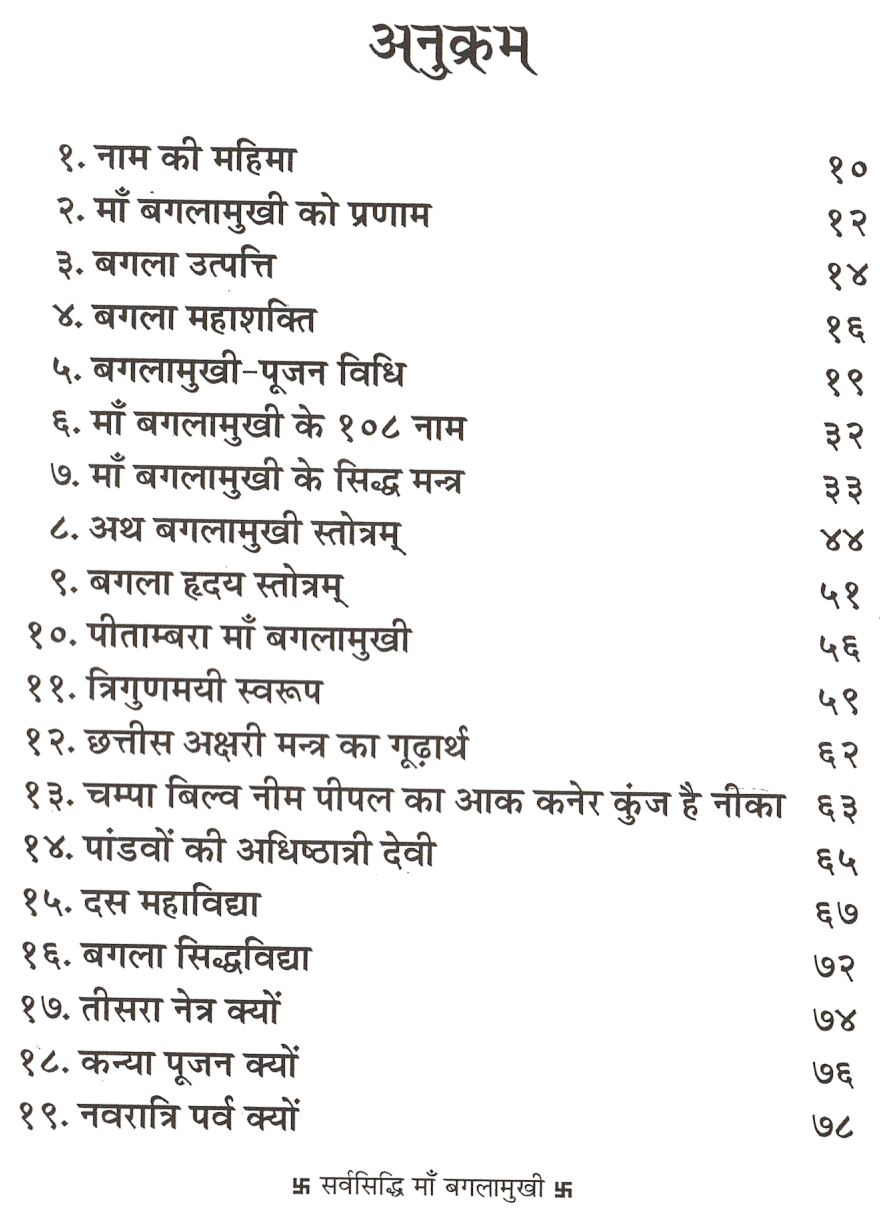 अनुक्रम
१. नाम की महिमा १०
२. माँ बगलामुखी को प्रणाम १२
३. बगला उत्पत्ति १४
४. बगला महाशक्ति १६
५. बगलामुखी-पूजन विधि १९
६. माँ बगलामुखी के १०८ नाम ३२
७. माँ बगलामुखी के सिद्ध मन्त्र ३३
८. अथ बगलामुखी स्तोत्रम् ४४
९. बगला हृदय स्तोत्रम् ५१
१०. पीताम्बरा माँ बगलामुखी ५६
११. त्रिगुणमयी स्वरूप ५९
१२. छत्तीस अक्षरी मन्त्र का गूढ़ार्थ ६२
१३. चम्पा बिल्व नीम पीपल का आक कनेर कुंज है नीका ६३
१४. पांडवों की अधिष्ठात्री देवी ६५
१५. दस महाविद्या ६७
१६. बगला सिद्धविद्या ७२
१७. तीसरा नेत्र क्यों ७४
१८. कन्या पूजन क्यों ७६
१९. नवरात्रि पर्व क्यों ७८
卐 सर्वसिद्धि माँ बगलामुखी 卐